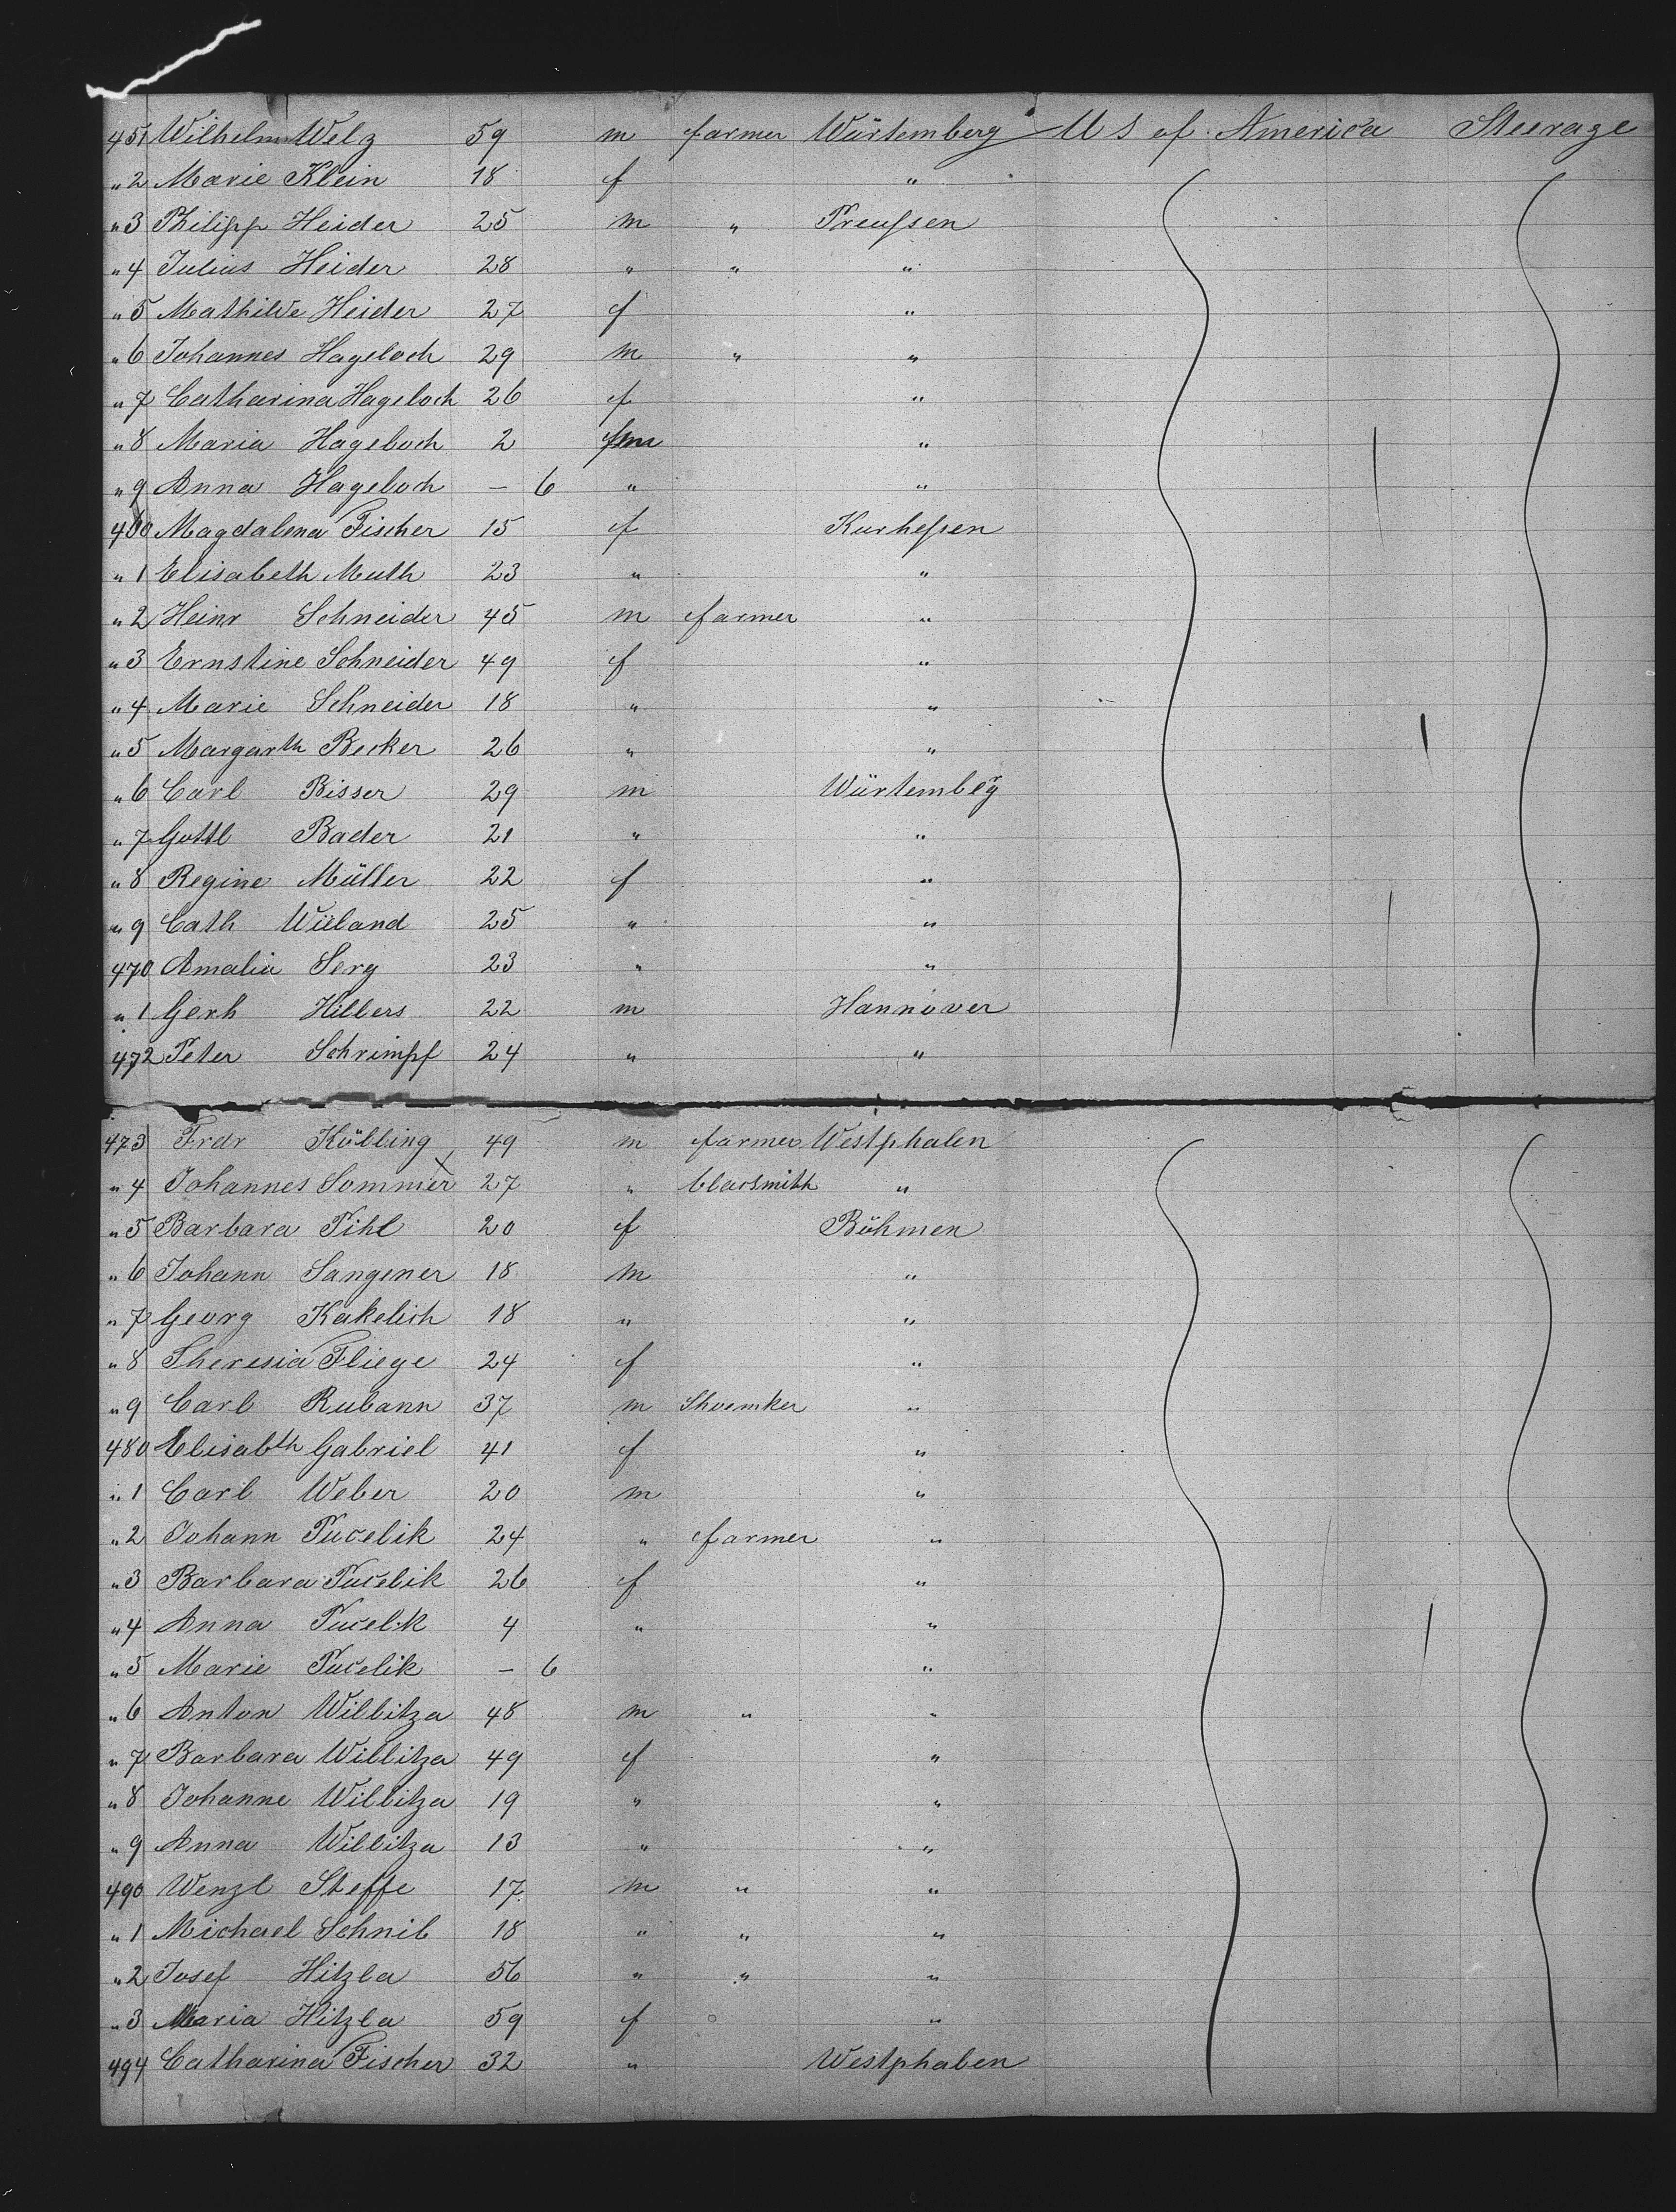 451 Wilhelm Welz 59 m farmer Würtemberg U S of America Steerage
"2 Marie Klein 18 f "
"3 Philipp Heider 25 m " Preußen
"4 Julius Heider 28 " " "
"5 Mathilde Heider 27 f "
"6 Johannes Hageloch 29 m " "
"7 Catharina Hageloch 26 f "
"8 Maria Hageloch 2 "
"9 Anna Hageloch – 6 " "
460 Magdalena Fischer 15 f Kurheßen
"1 Elisabeth Muth 23 " "
"2 Heinr Schneider 45 m farmer "
"3 Ernstine Schneider 49 f "
"4 Marie Schneider 18 " "
"5 Margarth Becker 26 " "
"6 Carl Bisser 29 m Würtemb̃g
"7 Gottl Bader 21 " "
"8 Regine Müller 22 f "
"9 Cath Wieland 25 " "
470 Amalia Serg 23 " "
"1 Gerh Hillers 22 m Hannover
472 Peter Schrimpf 24 " "
473 Fredr Kölling 49 m farmer Westphalen
"4 Johannes Sommer 27 " "
"5 Barbara Pihl 20 f Böhmen
"6 Johann Sangener 18 m "
"7 Georg Kakelich 18 " "
"8 Theresia Fliege 24 f "
"9 Carl Rubann 37 m Shoemker "
480 Elisabth Gabriel 41 f "
"1 Carl Weber 20 m "
"2 Johann Pucelik 24 " farmer "
"3 Barbara Pucelik 26 f "
"4 Anna Pucelik 4 " "
"5 Marie Pucelik – 6 "
"6 Anton Willitza 48 m " "
"7 Barbara Willitza 49 f "
"8 Johanne Willitza 19 " "
"9 Anna Willitza 13 " "
490 Wenzl Steffe 17 m " "
"1 Michael Schnil 18 " " "
"2 Josef Hitzla 56 " " "
"3 Maria Hitzla 59 f "
494 Catharina Fischer 32 " Westphalen